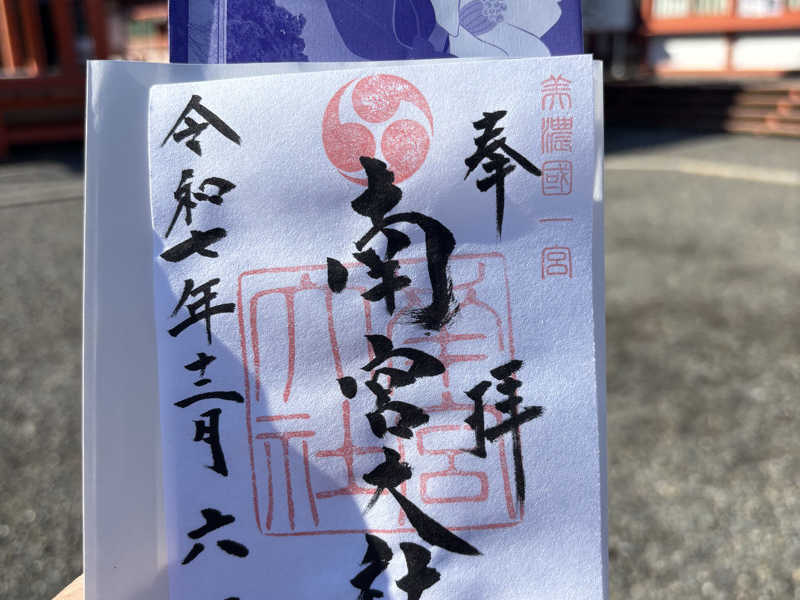 美濃國一宮
奉拝
南宮大社
南宮大社
令和七年十二月六